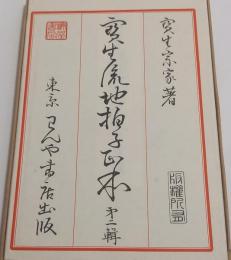 寳生宗家著
寳生流地拍子正本 第一輯
東京 わんや書店出版
版權所有